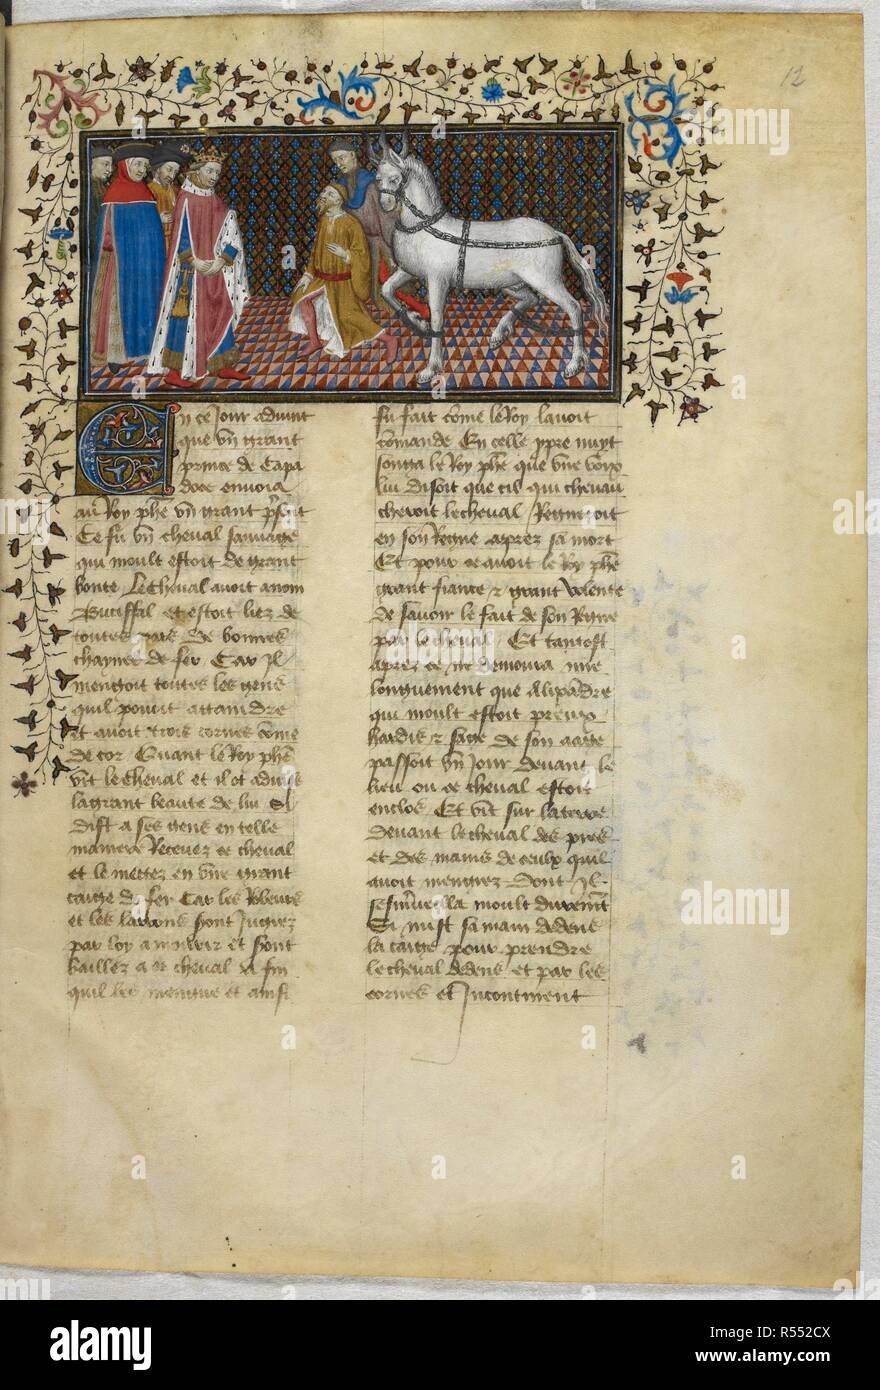 12
En ce jour advint
que vng grant
prince de Capa
doce enuoia
au Roy phē vng grant pr̄sent
Ce fu vng cheual sauuage
qui moult estoit de grant
bonte Le cheual auoit a nom
Buciffal et estoit liez de
toutes pars de bonnes
chaynes de fer Car Jl
mengoit toutes les gens
quil pouoit attaindre
et auoit trois cornes cōme
de cor Quant le Roy phē
vit le cheual et il ot aduise
la grant beaute de lui Si
dist a ses gens en telle
maniere Receuez ce cheual
et le mettez en vne grant
caige de fer Car les Robeurs
et les larrons sont Jugiez
par loy a mourir et sont
bailliez a ce cheual a fin
quil les mengue et ainsi
fu fait cōme le Roy lauoit
cōmande En celle ppre nuyt
songa le Roy phē que vne voix
lui disoit que cil qui cheuau
cheroit le cheual Regneroit
en son Regne apres sa mort
Et pour ce auoit le Roy phē
grant fiance & grant volente
de sauoir le fait de son Regne
par le cheual Et tantost
apres ce ne demoura mie
longuement que Alixandre
qui moult estoit preux
hardis & sage de son aage
passoit vn Jour deuant le
lieu ou ce cheual estoit
enclos Et vit sur la terre
deuant le cheual des pies
et des mains de ceulx quil
auoit mengiez Dont Jl
se sm̄ueilla moult durem̄t
Si mist sa main dedens
la caige pour prendre
le cheual dedens et par les
cornes et Jncontinent
alamy
Image ID: R552CX
www.alamy.com